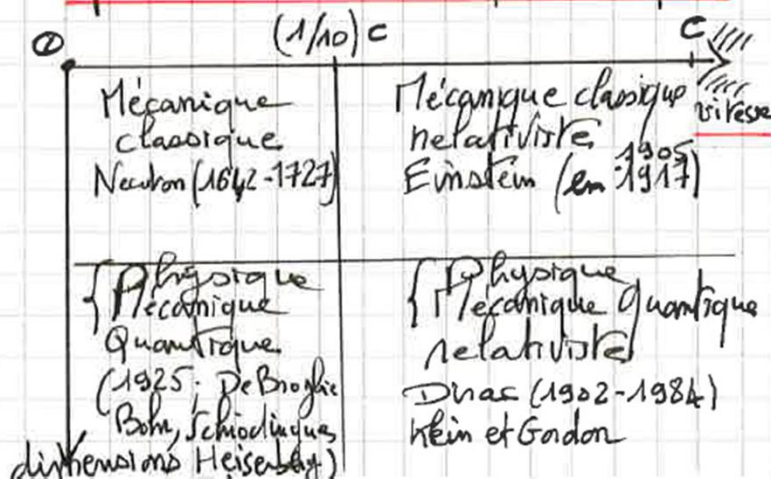 O (1/10) c C
vitesse
Mécanique
classique
Newton (1642-1727)
Mécanique classique
relativiste
1905
Einstein (en 1917)
{ Physique
Mécanique
Quantique
(1925; De Broglie
Bohr, Schrodinguer,
Heisenberg)
dimensions
{ Physique
Mécanique Quantique
relativiste
Dirac (1902-1984)
Klein et Gordon